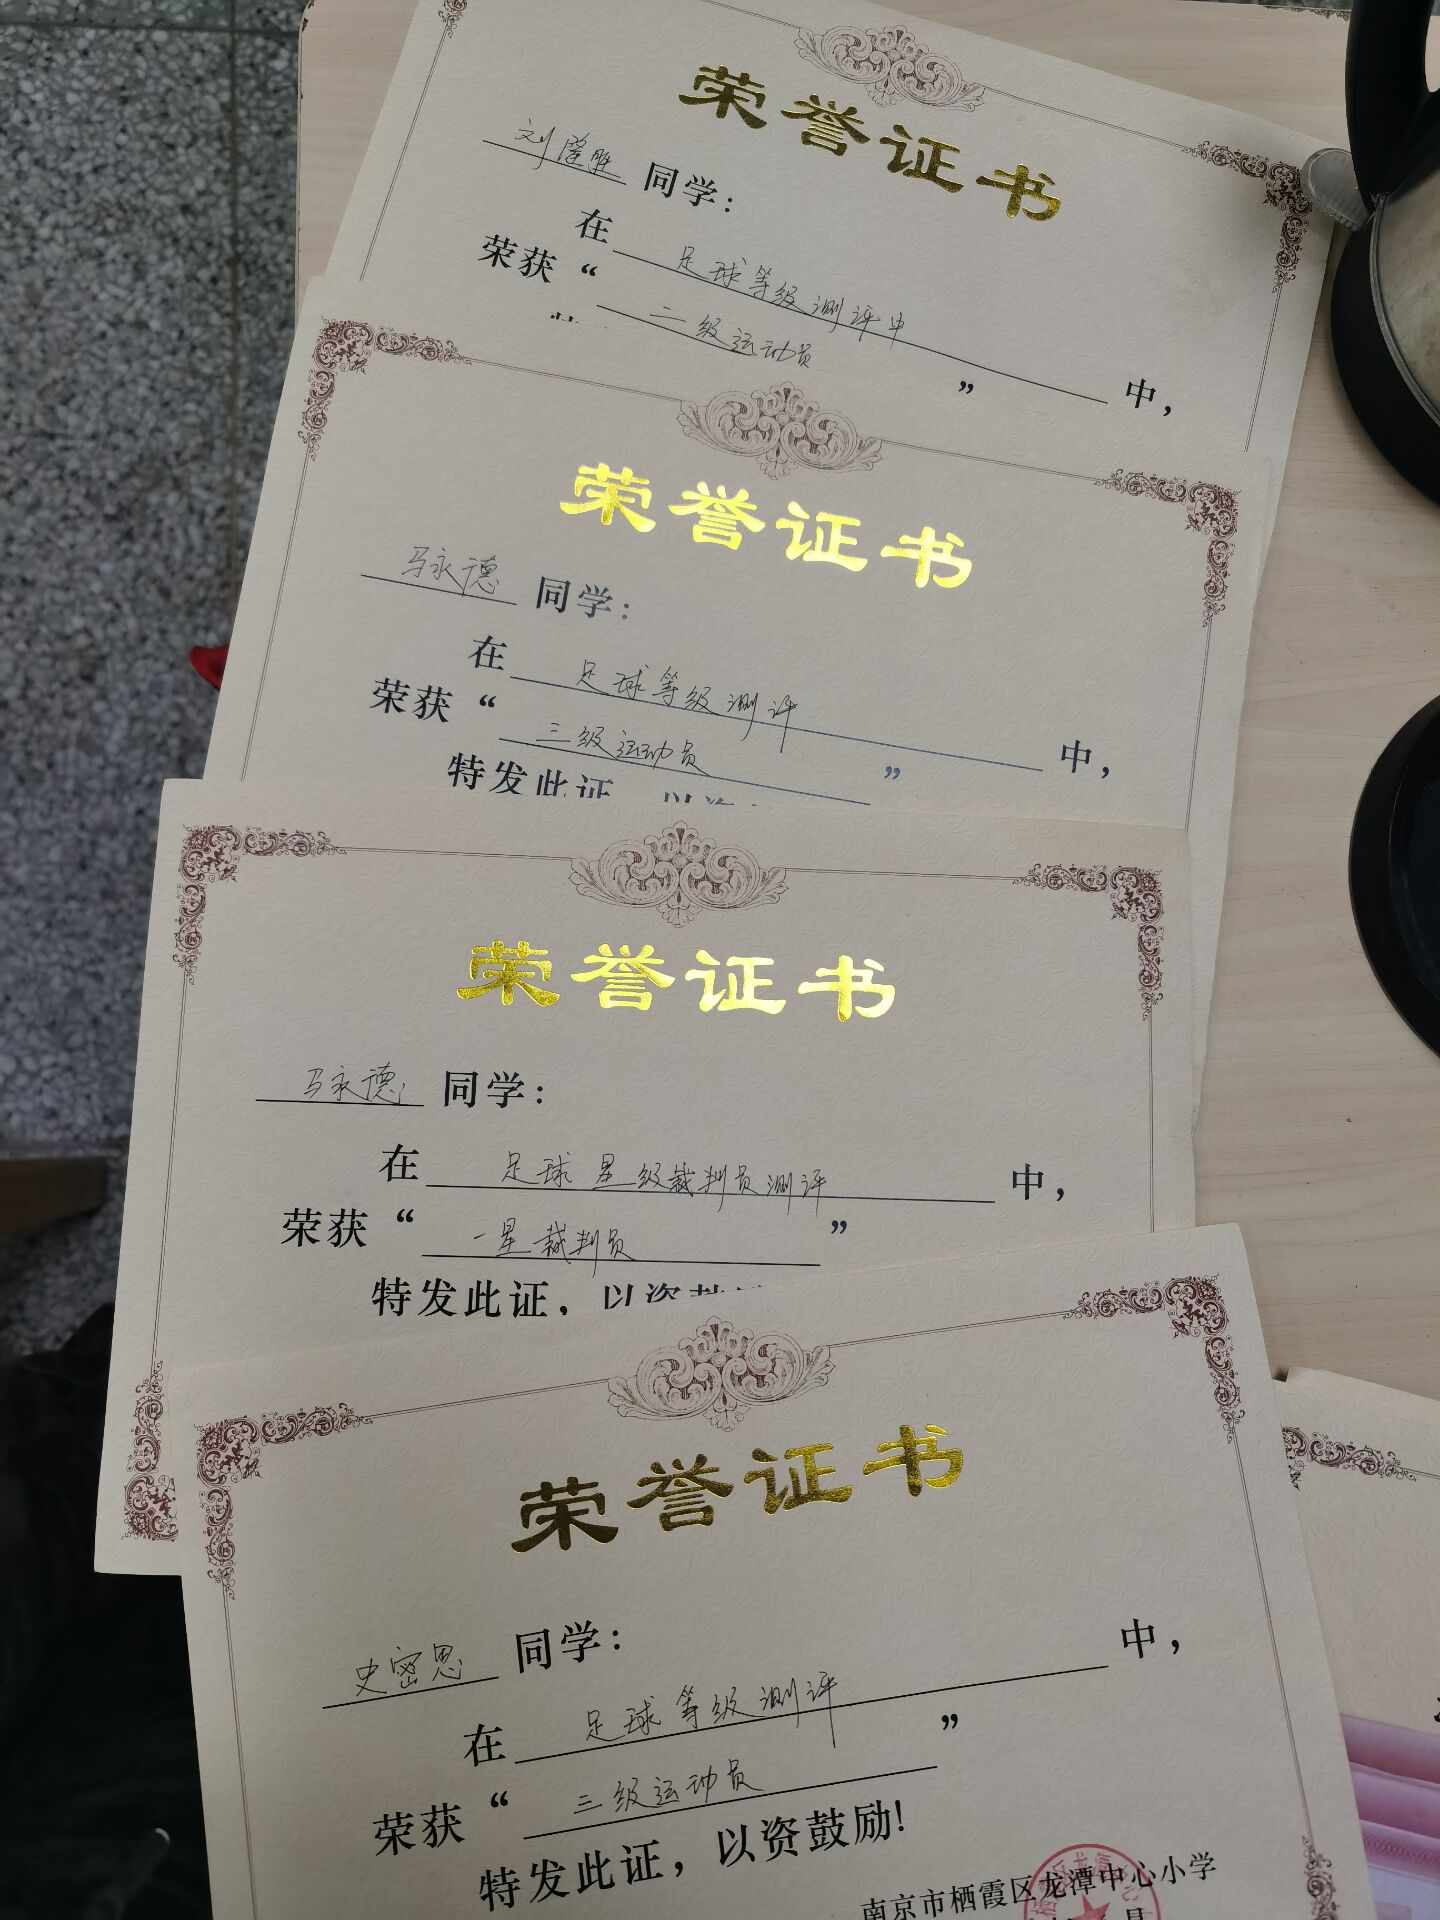 荣誉证书
刘 胜 同学：
在 足球等级测评中 中，
荣获“ 二级运动员 ”
荣誉证书
马永德 同学：
在 足球等级测评 中，
荣获“ 三级运动员 ”
特发此证
荣誉证书
马永德 同学：
在 足球星级裁判员测评 中，
荣获“ 一星裁判员 ”
特发此证，以资
荣誉证书
史密恩 同学：
在 足球等级测评 中，
荣获“ 三级运动员 ”
特发此证，以资鼓励！
南京市栖霞区龙潭中心小学